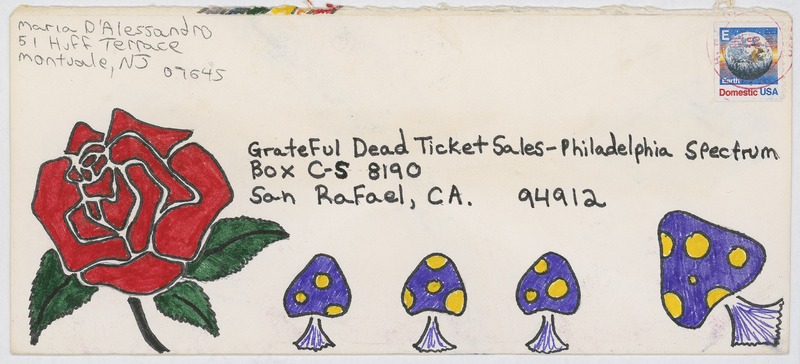 Maria D'Alessandro
51 Huff Terrace
Montvale, NJ
07645
E
Earth
Domestic USA
Grateful Dead Ticket Sales-Philadelphia Spectrum
Box C-S 8190
San Rafael, CA. 94912